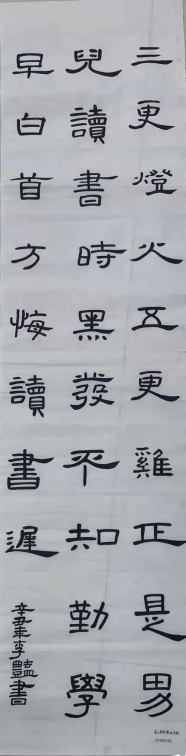 三更燈火五更雞正是男
兒讀書時黑發不知勤學
早白首方悔讀書遲
辛丑年李豔書